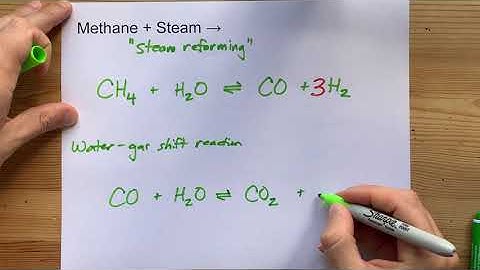 Methane + Steam →
"Steam reforming"
CH₄ + H₂O ⇌ CO + 3H₂
Water-gas shift reaction
CO + H₂O ⇌ CO₂ +
Sharpie